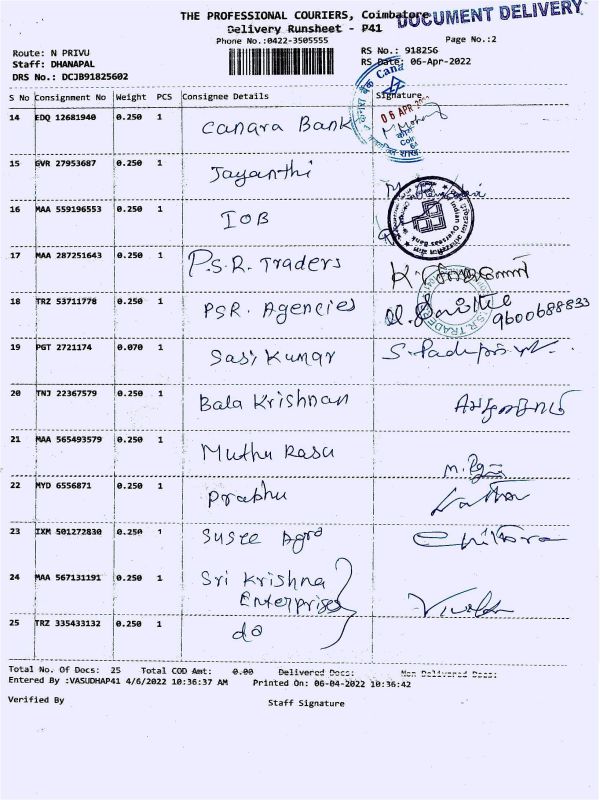 THE PROFESSIONAL COURIERS, Coimbatore
DOCUMENT DELIVERY
Delivery Runsheet - P41
Phone No.:0422-3505555
Page No.:2
Route: N PRIVU
RS No.: 918256
Staff: DHANAPAL
RS Date: 06-Apr-2022
DRS No.: DCJB91825602
S No Consignment No Weight PCS Consignee Details Signature
14 EDQ 12681940 0.250 1 Canara Bank
06 APR
15 GVR 27953687 0.250 1 Jayanthi
16 MAA 559196553 0.250 1 IOB
Indian Overseas Bank
17 MAA 287251643 0.250 1 P.S.R. Traders
18 TRZ 53711778 0.250 1 PSR. Agencies
9600688833
19 PGT 2721174 0.070 1 Sasi Kumar
20 TNJ 22367579 0.250 1 Bala Krishnan
21 MAA 565493579 0.250 1 Muthu Rasu
22 MYD 6556871 0.250 1 Prabhu
23 IXM 501272830 0.250 1 Susee Agro Chitora
24 MAA 567131191 0.250 1 Sri Krishna
Enterprises
25 TRZ 335433132 0.250 1 do
Total No. Of Docs: 25 Total COD Amt: 0.00 Delivered Docs: Non Delivered Docs:
Entered By :VASUDHAP41 4/6/2022 10:36:37 AM Printed On: 06-04-2022 10:36:42
Verified By
Staff Signature